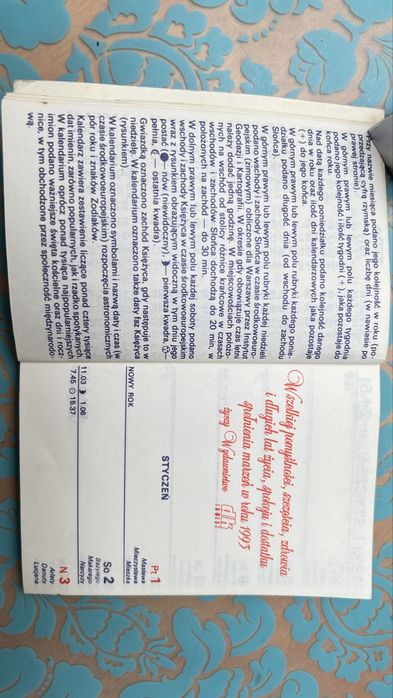 Przy nazwie miesiąca podano jego kolejność w roku (po-
przedzającą cyfrą rzymską) oraz liczbę dni (w nawiasie po
prawej stronie).
W górnym prawym lub lewym polu każdego tygodnia
podano jego kolejność i ilość tygodni (+) jaka pozostaje do
końca roku.
Nad datą każdego poniedziałku podano kolejność danego
dnia w roku oraz ilość dni kalendarzowych jaka pozostaje
(+) do jego końca.
W górnym prawym lub lewym polu rubryki każdego ponie-
działku podano długość dnia (od wschodu do zachodu
Słońca).
W górnym prawym lub lewym polu rubryki każdej niedzieli
podano wschody i zachody Słońca w czasie środkowoeuro-
pejskim (zimowym) obliczone dla Warszawy przez Instytut
Geodezji i Kartografii. W okresie gdy obowiązuje czas letni
należy dodać jedną godzinę. W miejscowościach położo-
nych na wschód od stolicy różnice krańcowe w czasach
wschodów i zachodów Słońca dochodzą do 20 min, w
położonych na zachód — do 30 min.
W dolnym prawym lub lewym polu każdej soboty podano
wschody i zachody Księżyca w czasie środkowoeuropejskim
wraz z rysunkiem obrazującym widoczną w tym dniu jego
postać (— nów (niewidoczny), — pierwsza kwadra,
pełnia, — ostatnia kwadra).
Gwiazdką oznaczono zachód Księżyca, gdy następuje to w
niedzielę. W kalendarium oznaczono także daty faz Księżyca
(rysunkiem).
W kalendarium oznaczono symbolami i nazwą daty i czas (w
czasie środkowoeuropejskim) rozpoczęcia astronomicznych
pór roku i znaków Zodiaków.
Kalendarz zawiera zestawienie liczące ponad cztery tysiące
dat imienin, zarówno często używanych, jak i rzadko spotykanych.
W kalendarium oprócz ponad tysiąca najpopularniejszych
imion podano ważniejsze święta kościelne oraz dni i rocz-
nice, w tym obchodzone przez społeczność międzynarodo-
wą.
Wszelkiej pomyślności, szczęścia, zdrowia
i długich lat życia, spokoju i dostatku
spełnienia marzeń w roku 1993
życzy Wydawnictwo
STYCZEŃ
NOWY ROK
Pt 1
Masława
Mieczysława
Mieszka
11.03 1.06
So 2
Bazylego
Makarego
Narcyzy
7.45 15.37
N 3
Arlety
Danuty
Lucjana